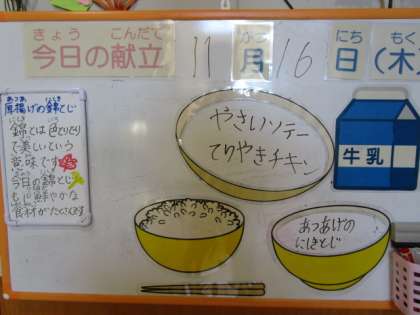 きょう こんだて
今日の献立
11
がつ
月
16
にち
日
もく
(木
あつあ にしき
厚揚げの錦とじ
錦とは色とりどり
で美しいという
意味です
今日の錦とじ
も鮮やかな
食材がたくさんです
やさいソテー
てりやきチキン
牛乳
あつあげの
にしきとじ